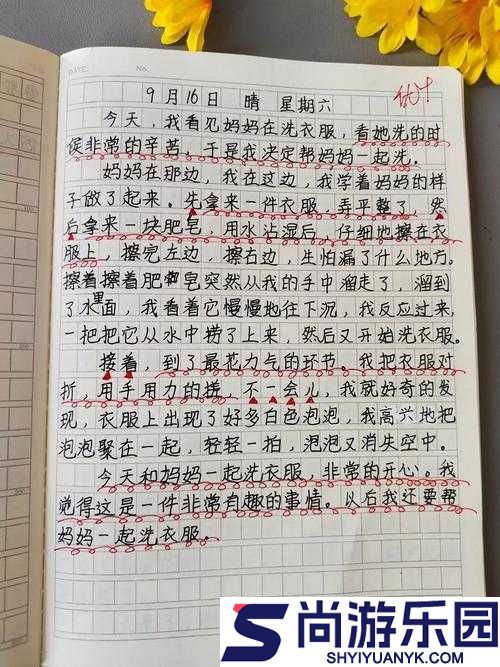 DATE: No.
9月16日 晴 星期六
优+
今天，我看见妈妈在洗衣服，看她洗的时
候非常的辛苦，于是我决定帮妈妈一起洗。
妈妈在那边，我在这边，我学着妈妈的样
子做了起来。先拿来一件衣服，弄平整了，然
后拿来一块肥皂，用水沾湿后，仔细地擦在衣
服上，擦完左边，擦右边，生怕漏了什么地方。
擦着擦着肥皂突然从我的手中溜走了，溜到
了水里面，我看着它慢慢地往下沉，我反应过来，
一把把它从水中捞了上来，然后又开始洗衣服。
接着，到了最花力气的环节。我把衣服对
折，用手用力的搓，不一会儿，我就好奇的发
现，衣服上出现了好多白色泡泡，我高兴地把
泡泡聚在一起，轻轻一拍，泡泡又消失空中。
今天和妈妈一起洗衣服，非常的开心。我
觉得这是一件非常有趣的事情。以后我还要帮
妈妈一起洗衣服。
尚游乐园
SHYIYUANYK.COM